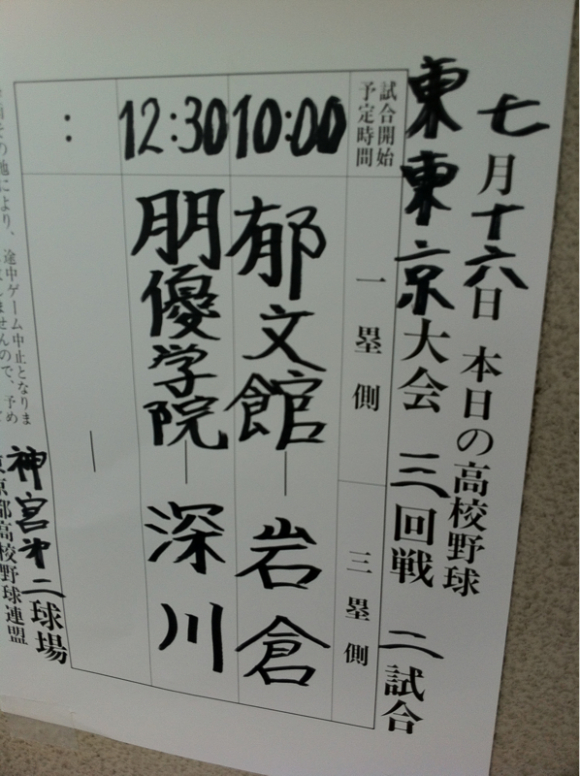 七月十六日 本日の高校野球
東東京大会 三回戦 二試合
試合開始予定時間 一塁側 三塁側
10:00 郁文館 ― 岩倉
12:30 朋優学院 ― 深川
: ―
途中ゲーム中止となりま
せんので、予め
神宮第二球場
京都高校野球連盟